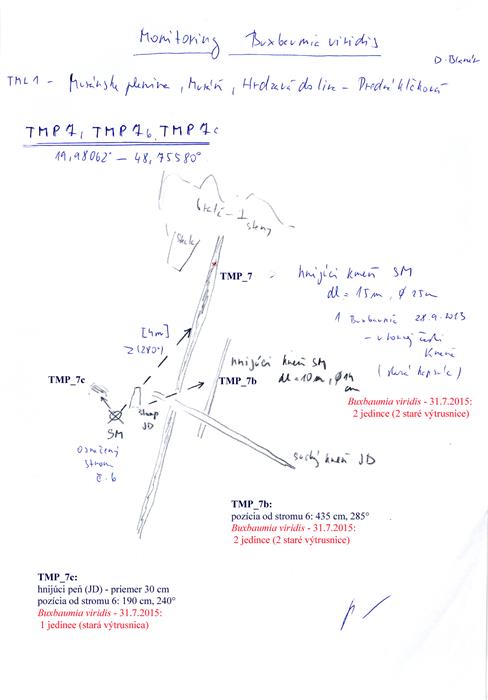 Monitoring Buxbaumia viridis
D. Blanár
TML 1 - Muránska planina, Muráň, Hrdzavá dolina - Predná Kľaková
TMP 7, TMP 7b, TMP 7c
19,98062° - 48,75580°
skala
steny
TMP_7
hnijúci kmeň SM
dl = 15m, ϕ 25cm
1 Buxbaumia 28.9.2013
kmeňa
(stará kapsula)
Buxbaumia viridis - 31.7.2015:
2 jedince (2 staré výtrusnice)
[4m]
(280°)
hnijúci kmeň SM
dl = 10m, ϕ 14 cm
TMP_7b
TMP_7c
SM
stump
JD
označený
strom
č. 6
suchý kmeň JD
TMP_7b:
pozícia od stromu 6: 435 cm, 285°
Buxbaumia viridis - 31.7.2015:
2 jedince (2 staré výtrusnice)
TMP_7c:
hnijúci peň (JD) - priemer 30 cm
pozícia od stromu 6: 190 cm, 240°
Buxbaumia viridis - 31.7.2015:
1 jedinec (stará výtrusnica)